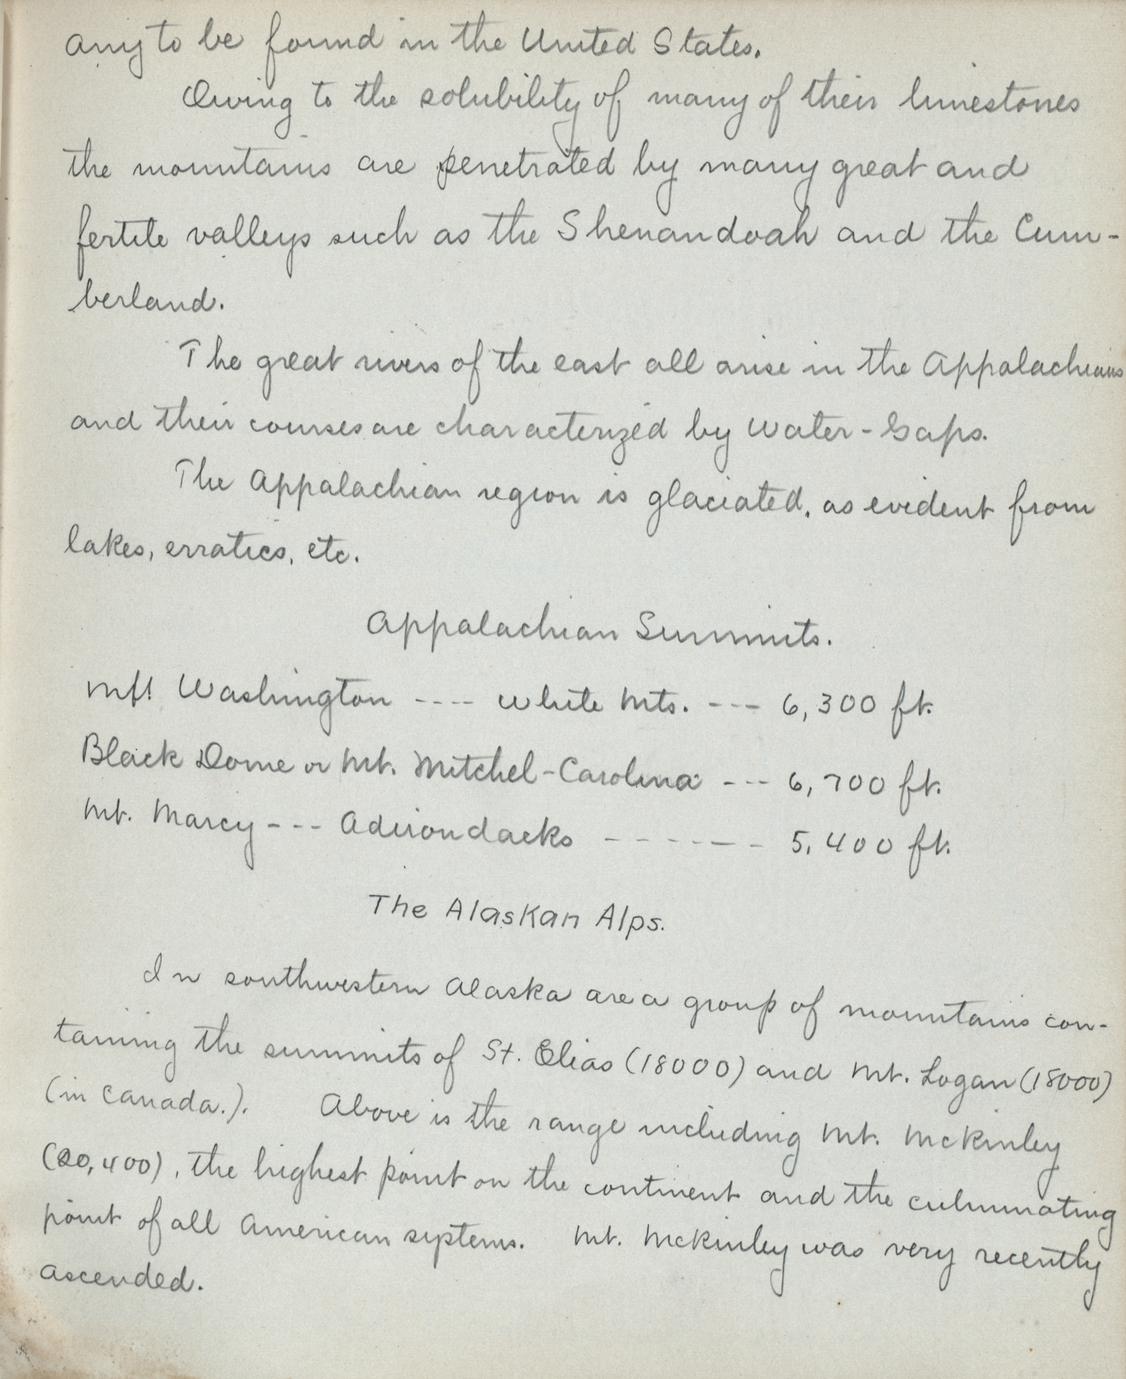 any to be found in the United States.
Owing to the solubility of many of their limestones
the mountains are penetrated by many great and
fertile valleys such as the Shenandoah and the Cum-
berland.
The great rivers of the east all arise in the Appalachians
and their courses are characterized by Water-Gaps.
The Appalachian region is glaciated, as evident from
lakes, erratics, etc.
Appalachian Summits.
Mt. Washington ---- White Mts. --- 6,300 ft.
Black Dome or Mt. Mitchel-Carolina --- 6,700 ft.
Mt. Marcy --- Adirondacks ------- 5,400 ft.
The Alaskan Alps.
In southwestern Alaska are a group of mountains con-
taining the summits of St. Elias (18000) and Mt. Logan (18000)
(in Canada.). Above is the range including Mt. McKinley
(20,400), the highest point on the continent and the culminating
point of all American systems. Mt. McKinley was very recently
ascended.